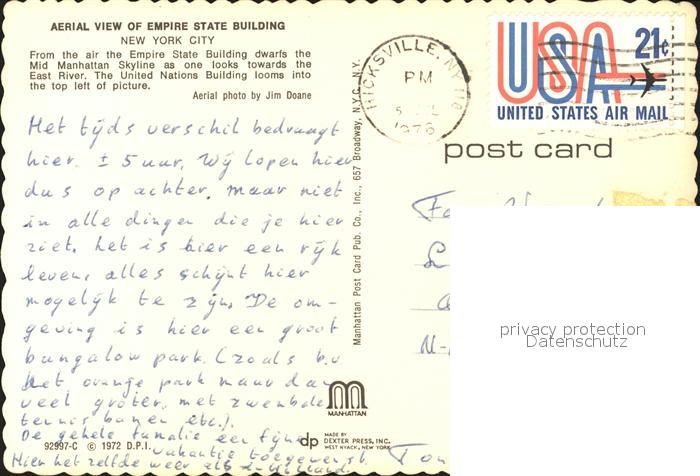 AERIAL VIEW OF EMPIRE STATE BUILDING
NEW YORK CITY
From the air the Empire State Building dwarfs the
Mid Manhattan Skyline as one looks towards the
East River. The United Nations Building looms into
the top left of picture.
Aerial photo by Jim Doane
Het tijds verschil bedraagt
hier ± 5 uur. Wij lopen hier
dus op achter, maar niet
in alle dingen die je hier
ziet. het is hier een rijk
leven, alles schijnt hier
mogelijk te zijn. De om-
geving is hier een groot
bungalow park. (zoals b.v
het oranje park maar dan
veel groter, met zwembad
tennis banen etc.).
De gehele familie een fijne
vakantie toegewenst.
Hier het zelfde weer als
92997-C © 1972 D.P.I.
Manhattan Post Card Pub. Co., Inc., 657 Broadway, N.Y.C. N.Y.
MANHATTAN
dp MADE BY
DEXTER PRESS, INC.
WEST NYACK, NEW YORK
HICKSVILLE, NY 118
PM
1976
USA 21c
UNITED STATES AIR MAIL
post card
Fa
privacy protection
Datenschutz